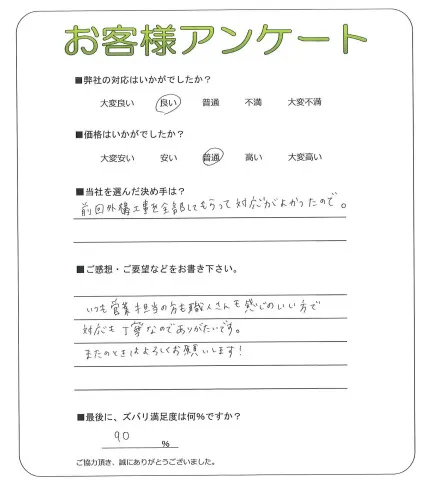 お客様アンケート
■弊社の対応はいかがでしたか？
大変良い 良い 普通 不満 大変不満
■価格はいかがでしたか？
大変安い 安い 普通 高い 大変高い
■当社を選んだ決め手は？
前回外構工事を全部してもらって対応がよかったので。
■ご感想・ご要望などをお書き下さい。
いつも営業担当の方も職人さんも感じのいい方で
対応も丁寧なのでありがたいです。
またのときはよろしくお願いします！
■最後に、ズバリ満足度は何%ですか？
90 %
ご協力頂き、誠にありがとうございました。